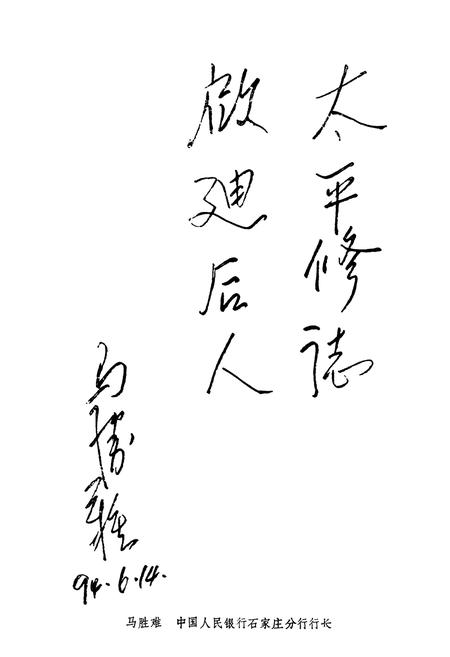 太平修誌
啟廸后人
马胜难
94.6.14.
马胜难　中国人民银行石家庄分行行长